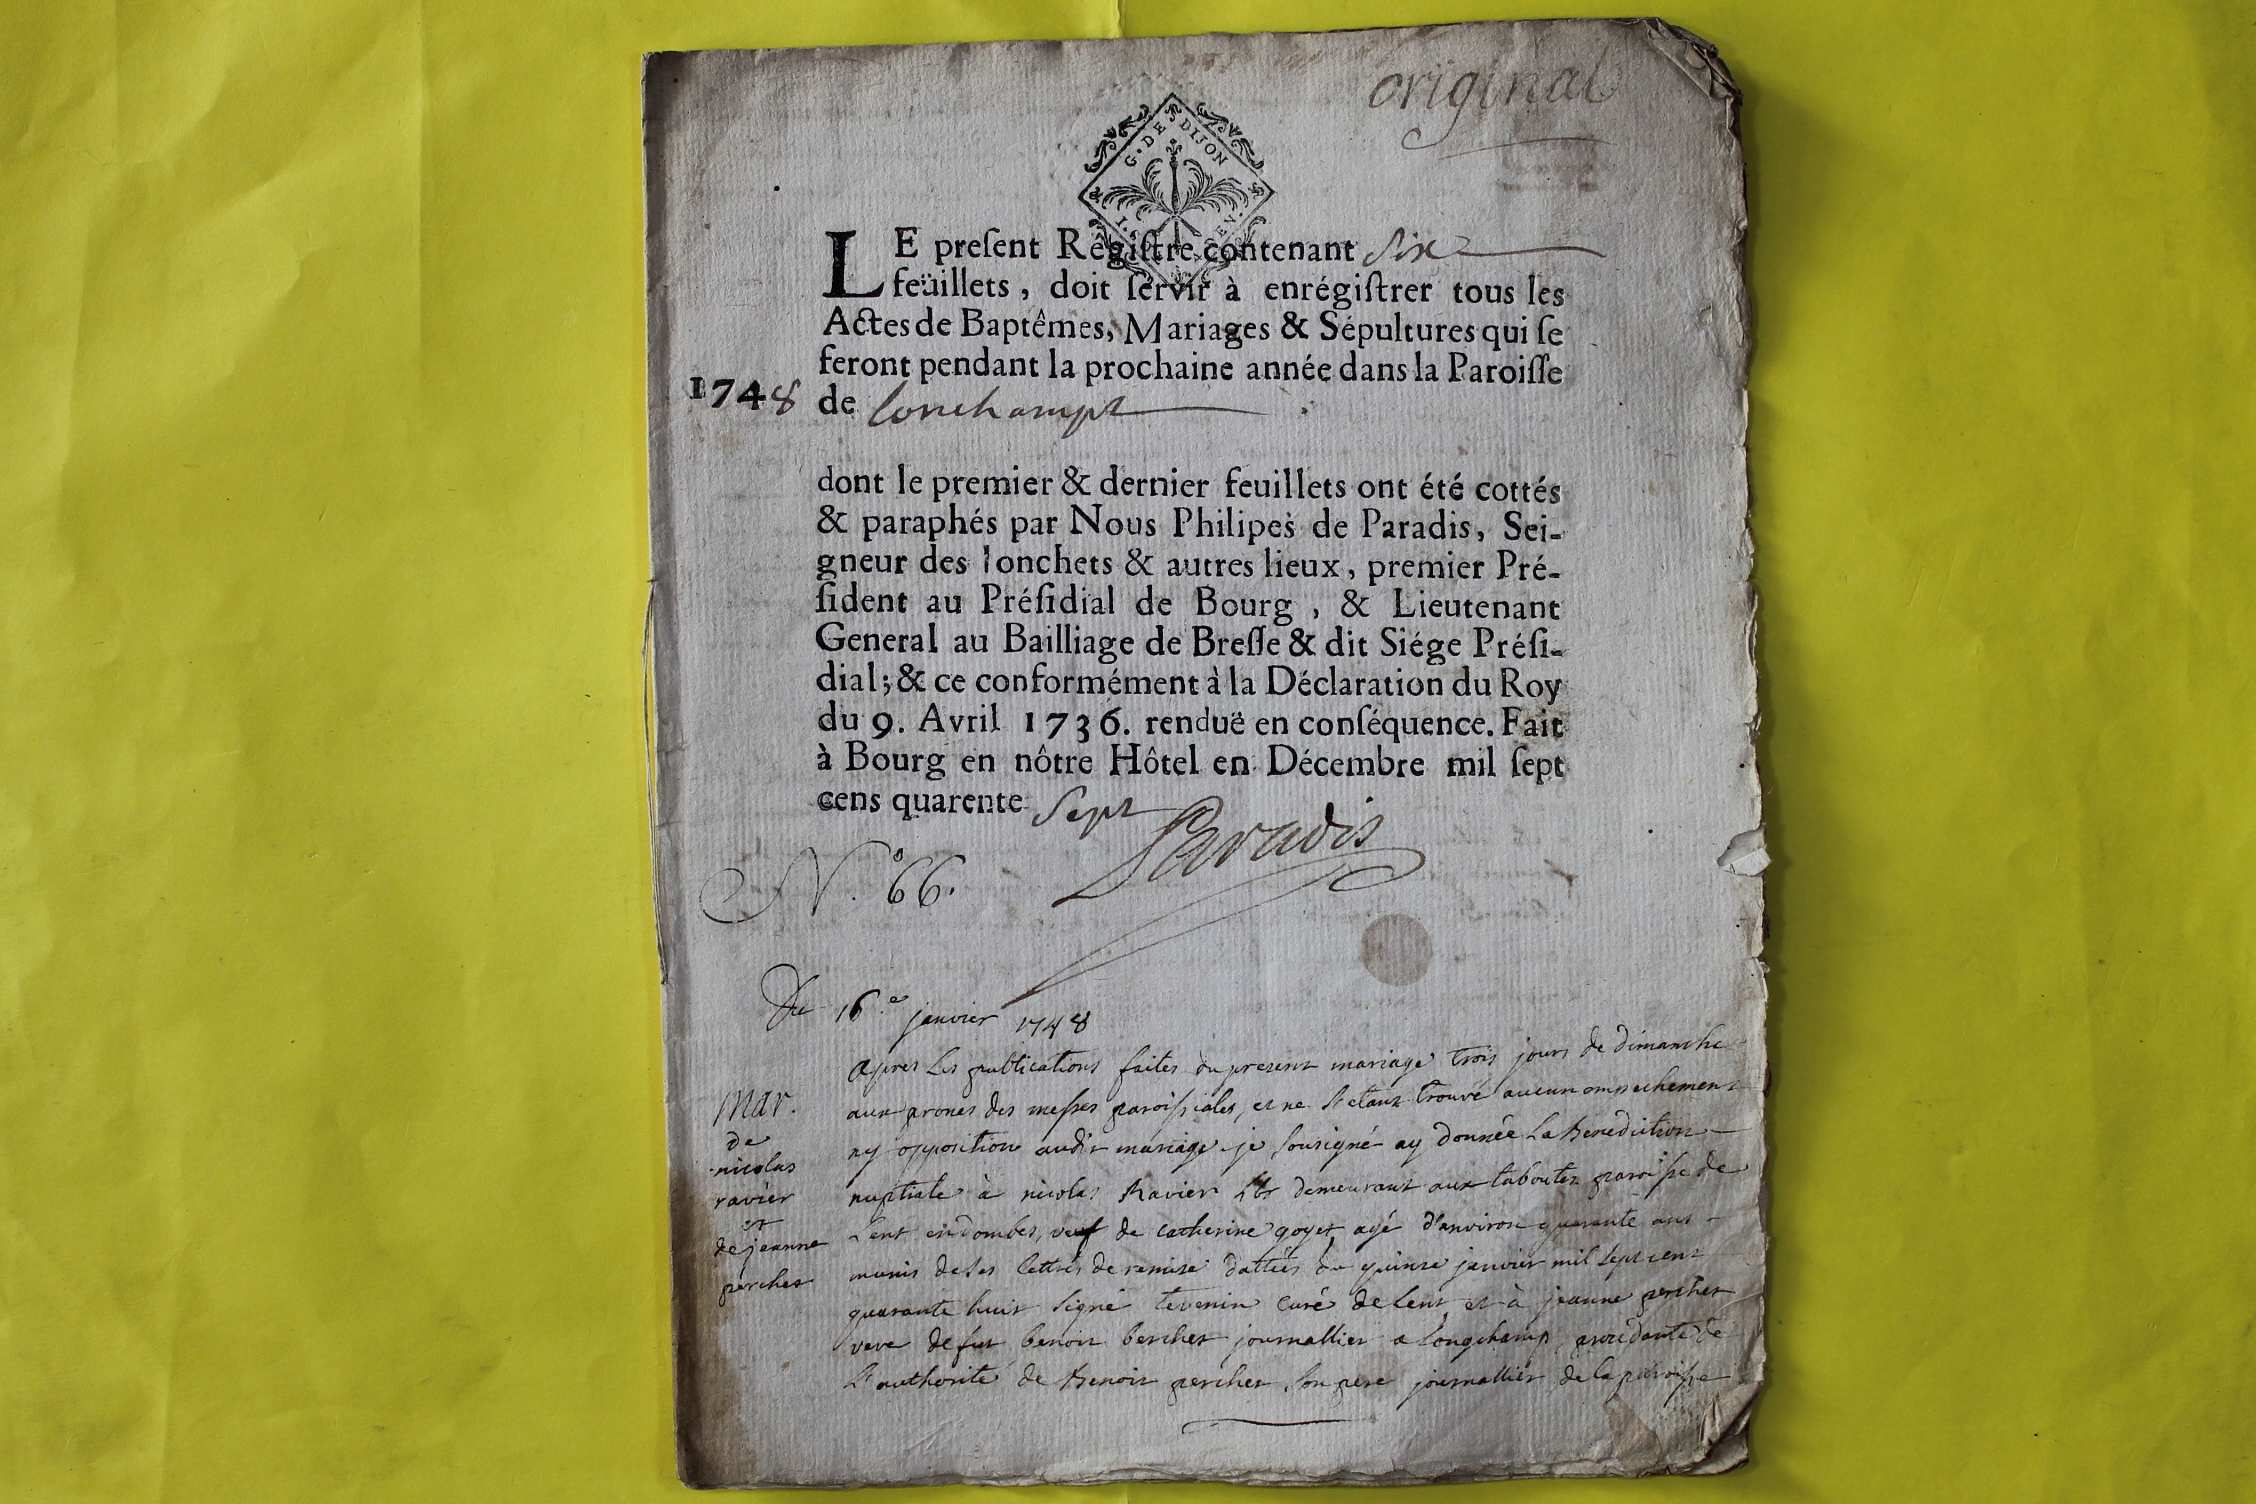 original
G. DE DIJON
LE preſent Rêgiſtre contenant Six
feüillets, doit ſervir à enrégiſtrer tous les
Actes de Baptêmes, Mariages & Sépultures qui ſe
feront pendant la prochaine année dans la Paroiſſe
1748 de Lonchampt
dont le premier & dernier feuillets ont été cottés
& paraphés par Nous Philipes de Paradis, Sei-
gneur des Ionchets & autres lieux, premier Pré-
ſident au Préſidial de Bourg, & Lieutenant
General au Bailliage de Breſſe & dit Siége Préſi-
dial; & ce conformément à la Déclaration du Roy
du 9. Avril 1736. renduë en conſéquence. Fait
à Bourg en nôtre Hôtel en Décembre mil ſept
cens quarente Sept
Paradis
N.° 66.
Du 16e janvier 1748
mar.
de
nicolas
ravier
et
de jeanne
perchet
apres les publications faites du present mariage trois jours de dimanche
aux prones des messes paroissiales, et ne s'etant trouvé aucun empechement
ny opposition audit mariage je sousigné ay donnée la Benediction
nuptiale à nicolas Ravier demeurant aux paroisse de
Lent en dombes, veuf de catherine goyet agé d'anviron quarante ans
munis de ses lettres de remise dattées du quinze janvier mil sept cent
quarante huit signé tevenin curé de lent et à jeanne perchet
veve de fut benoit berchet journallier a Longchamp, procédante de
L'authorité de Benoit perchet, son pere journallier de la paroisse